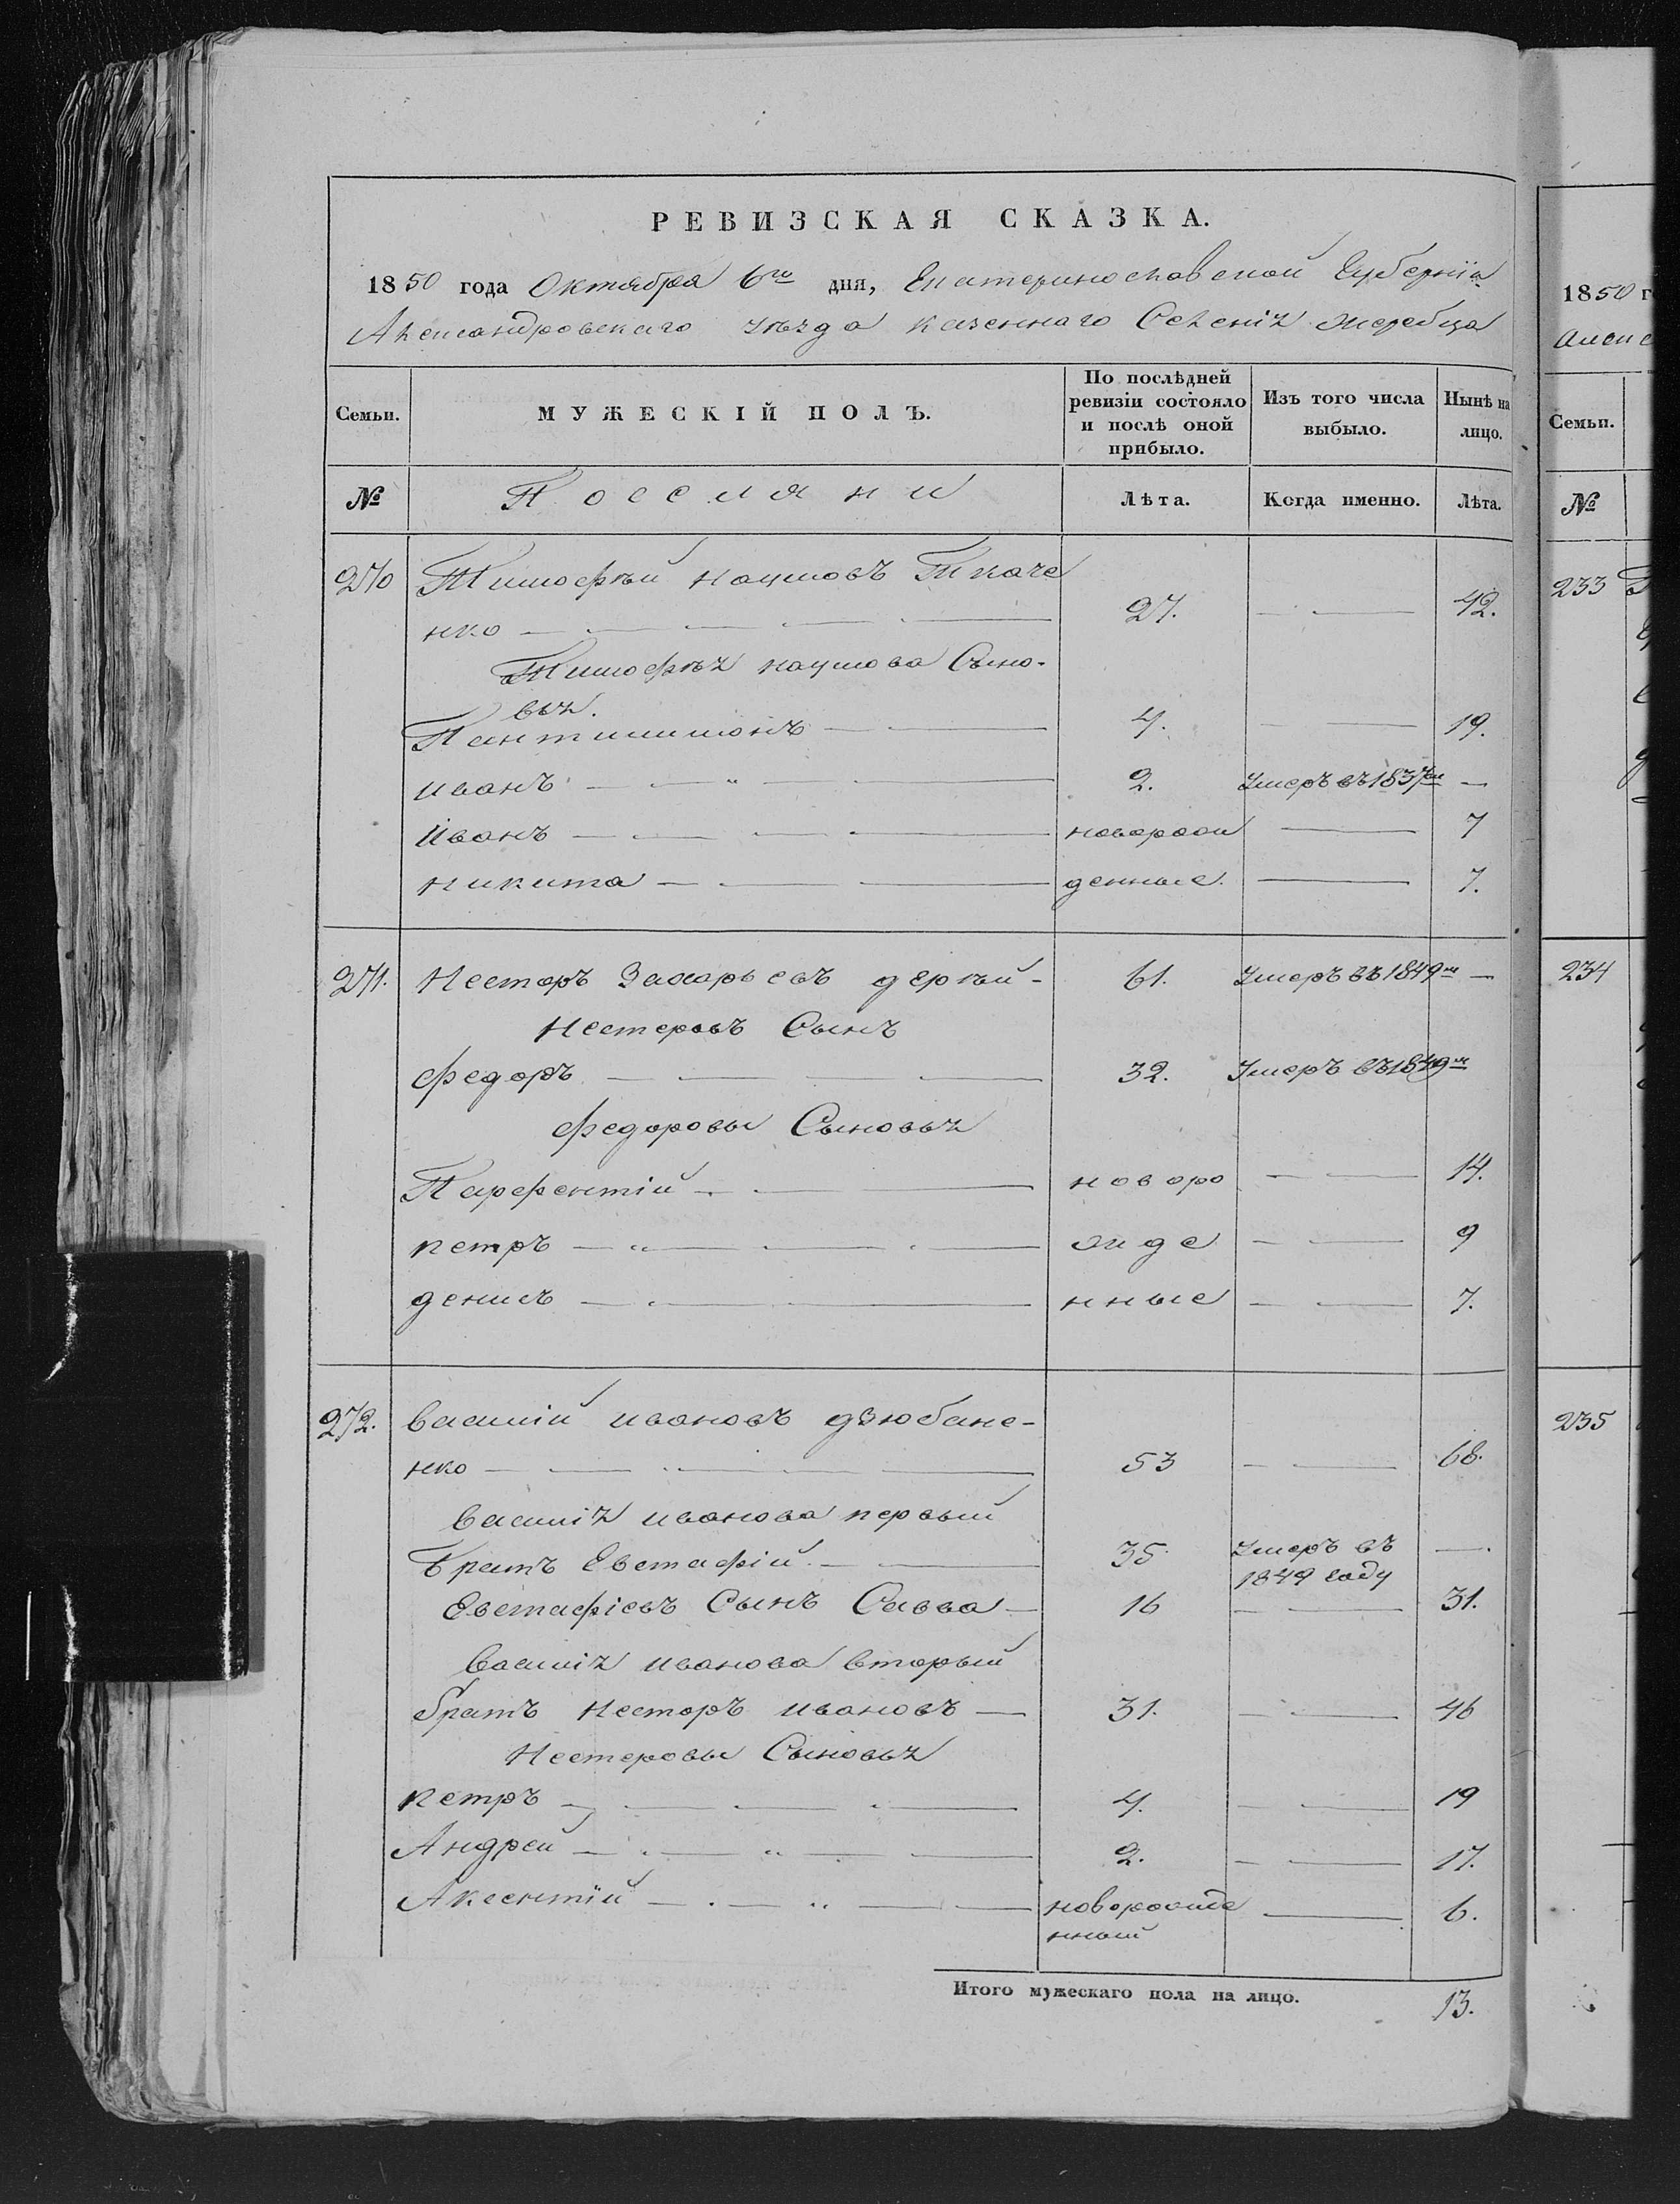 РЕВИЗСКАЯ СКАЗКА.
1850 года Октября 6го дня, Екатеринославской Губерніи
Александровскаго уѣзда казеннаго Селенія жеребца
Семьи.
МУЖЕСКІЙ ПОЛЪ.
По послѣдней ревизіи состояло и послѣ оной прибыло.
Изъ того числа выбыло.
Нынѣ на лицо.
№
Поселяни
Лѣта.
Когда именно.
Лѣта.
270 Тимофѣй наумовъ Ткаче
нко 27. 42.
Тимофѣя наумова Сыно-
вья.
Пантилимонъ 4. 19.
иванъ 2. Умеръ въ 1837м —
Иванъ новорож 7
никита денные. 7.
271. Несторъ Захарьевъ дергъй- 61. Умеръ въ 1849м —
Нестеровъ Сынъ
федоръ 32. Умеръ въ 1849м
федоровы Сыновья
Парфентій новоро 14.
петръ жде 9
денисъ нные 7.
272. василій ивановъ дзюбане-
нко 53 68.
василія иванова первый
братъ Евстафій 35. Умеръ въ —.
1849 году
Евстафіевъ Сынъ Савва 16 31.
василія иванова вторый
братъ Несторъ ивановъ 31. 46
Нестеровы Сыновья
петръ 4. 19
Андрей 2. 17.
Аксентій новорожде 6.
нный
Итого мужескаго пола на лицо. 13.
1850
Семьи.
№
233
234
235